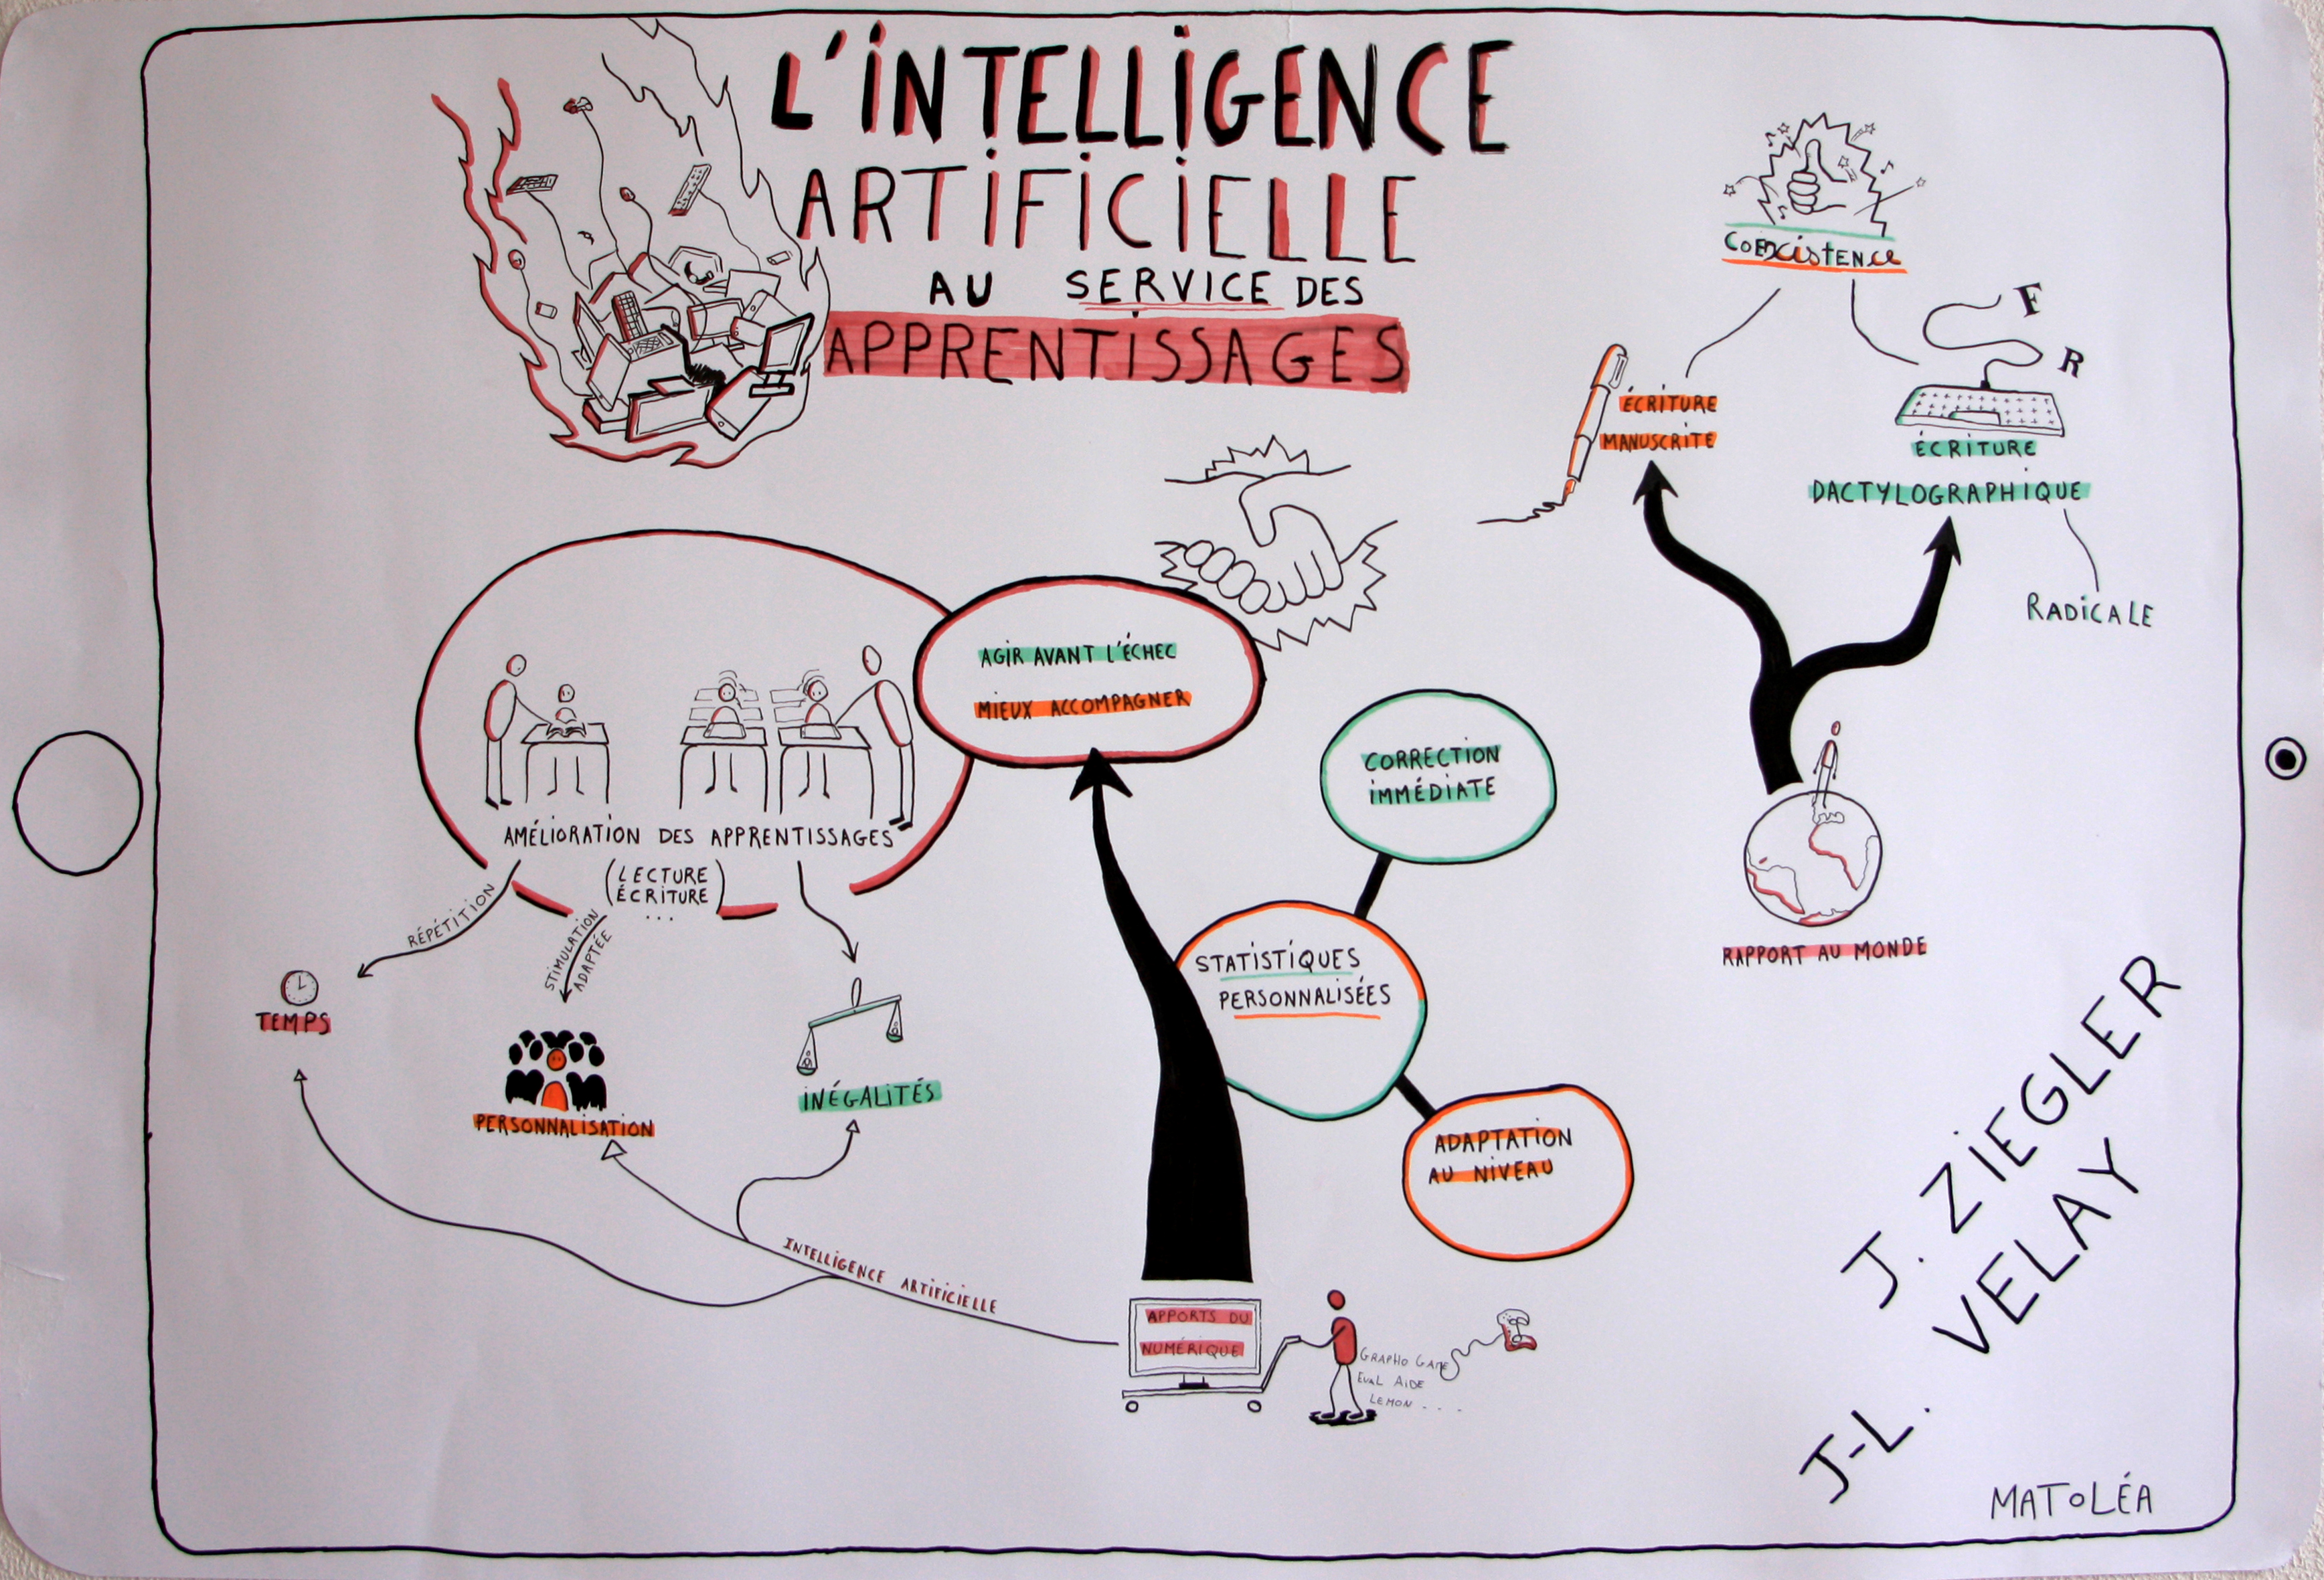 L'INTELLIGENCE
ARTIFICIELLE
AU SERVICE DES
APPRENTISSAGES
COEXISTENCE
F
R
ÉCRITURE
MANUSCRITE
ÉCRITURE
DACTYLOGRAPHIQUE
RADICALE
RAPPORT AU MONDE
AGIR AVANT L'ÉCHEC
MIEUX ACCOMPAGNER
AMÉLIORATION DES APPRENTISSAGES
(LECTURE
ÉCRITURE)
...
RÉPÉTITION
STIMULATION
ADAPTÉE
TEMPS
PERSONNALISATION
INÉGALITÉS
CORRECTION
IMMÉDIATE
STATISTIQUES
PERSONNALISÉES
ADAPTATION
AU NIVEAU
INTELLIGENCE ARTIFICIELLE
APPORTS DU
NUMÉRIQUE
GRAPHO GAME
EVAL AIDE
LEMON ....
J. ZIEGLER
J-L. VELAY
MATOLÉA